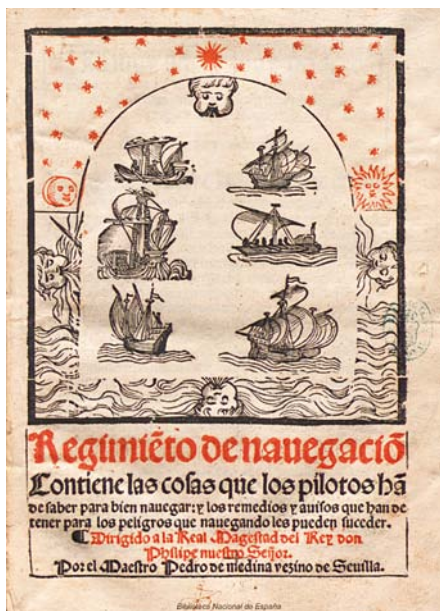 Regimiẽto de nauegaciõ
Contiene las cosas que los pilotos hã
de saber para bien nauegar: y los remedios y auisos que han de
tener para los peligros que nauegando les pueden suceder.
Dirigido a la Real Magestad del Rey don
Philipe nuestro Señor.
Por el Maestro Pedro de medina vezino de Seuilla.
Biblioteca Nacional de España